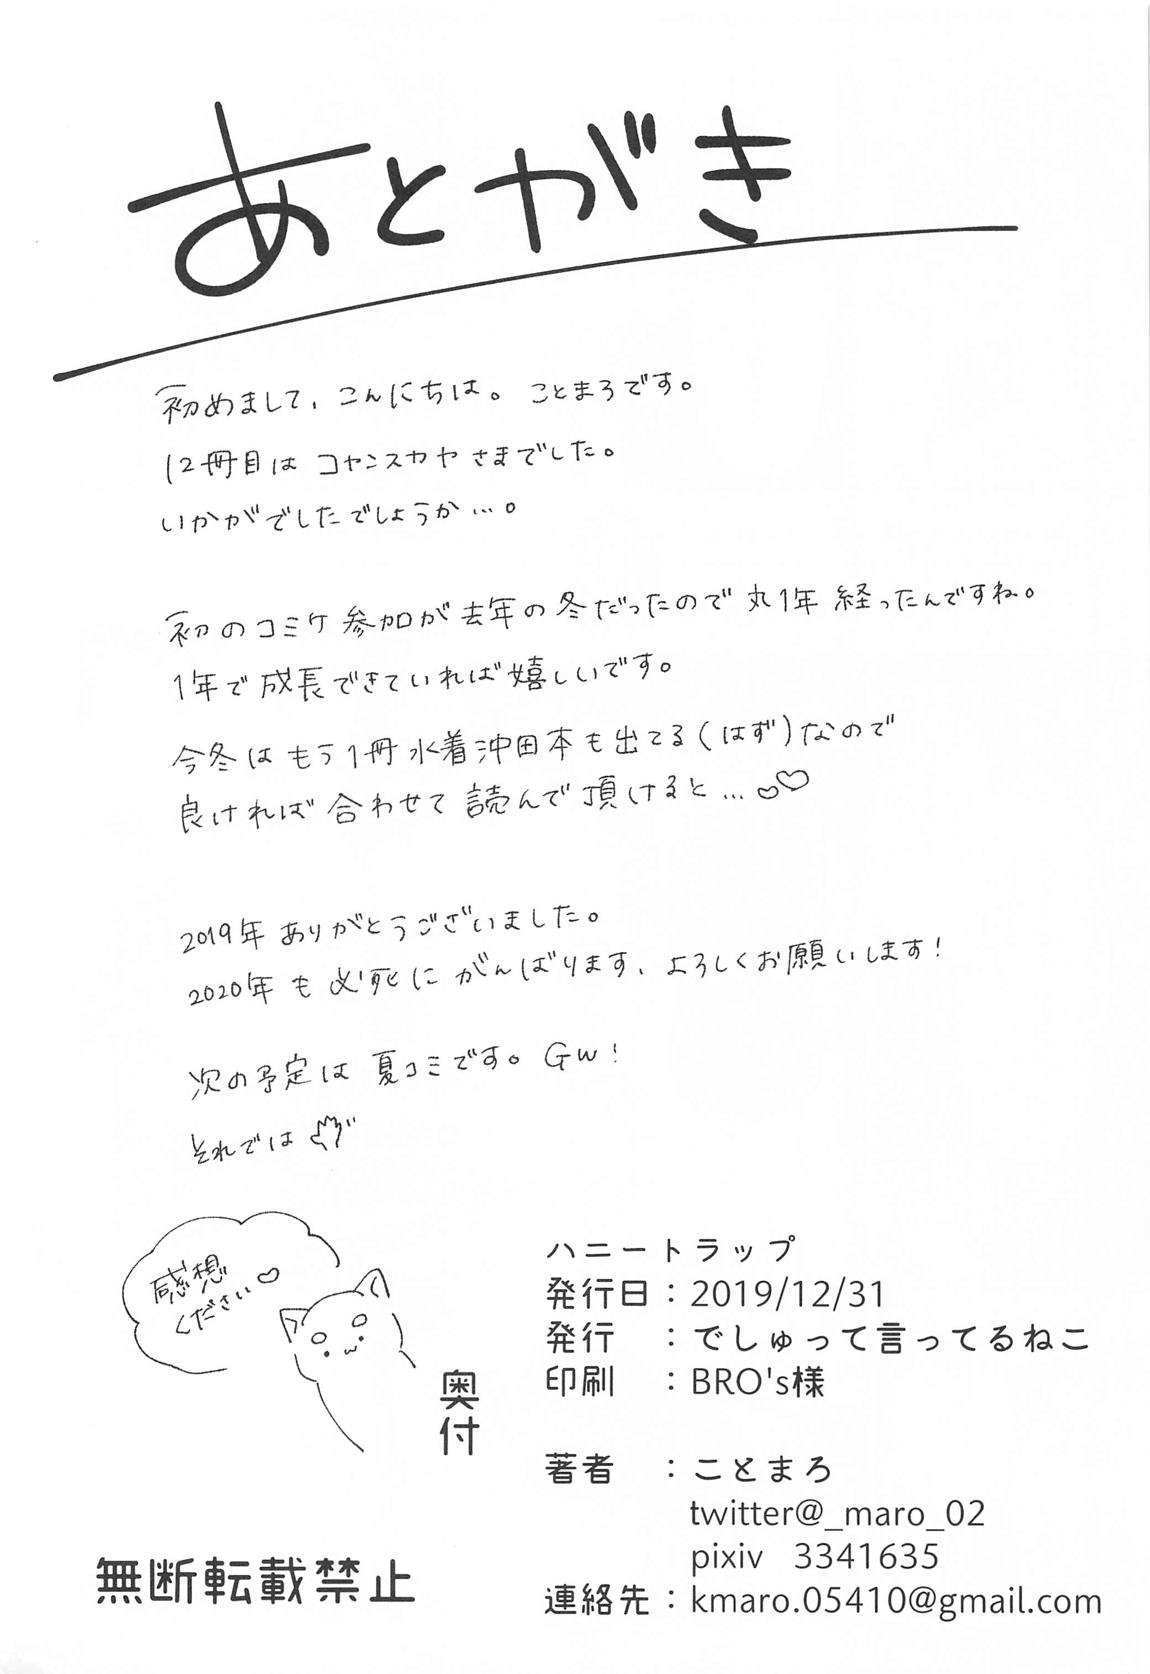 あとがき
初めまして、こんにちは。ことまろです。
12冊目はコヤンスカヤさまでした。
いかがでしたでしょうか…。
初のコミケ参加が去年の冬だったので丸1年経ったんですね。
1年で成長できていれば嬉しいです。
今冬はもう1冊水着沖田本も出てる(はず)なので
良ければ合わせて読んで頂けると…♡♡
2019年ありがとうございました。
2020年も必死にがんばります、よろしくお願いします!
次の予定は夏コミです。GW!
それでは
感想
ください♡
奥付
ハニートラップ
発行日:2019/12/31
発行 :でしゅって言ってるねこ
印刷 :BRO's様
著者 :ことまろ
twitter@_maro_02
pixiv 3341635
連絡先:kmaro.05410@gmail.com
無断転載禁止